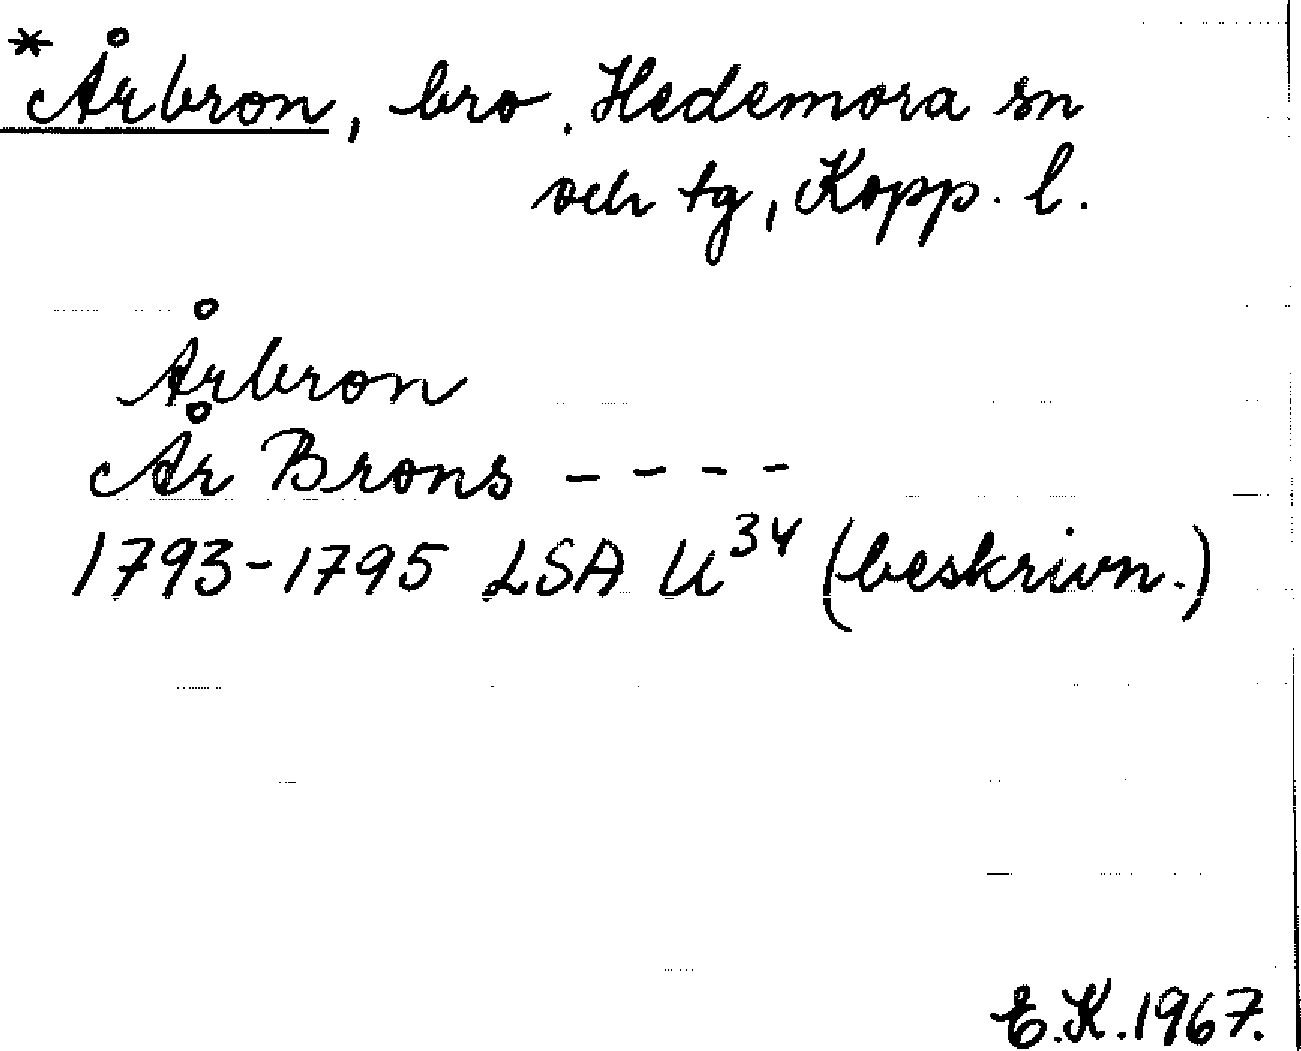 *Årbron, bro. Hedemora sn
och tg, Kopp. l.
Årbron
År Brons – – – –
1793-1795 LSA U34 (beskrivn.)
E.K. 1967.